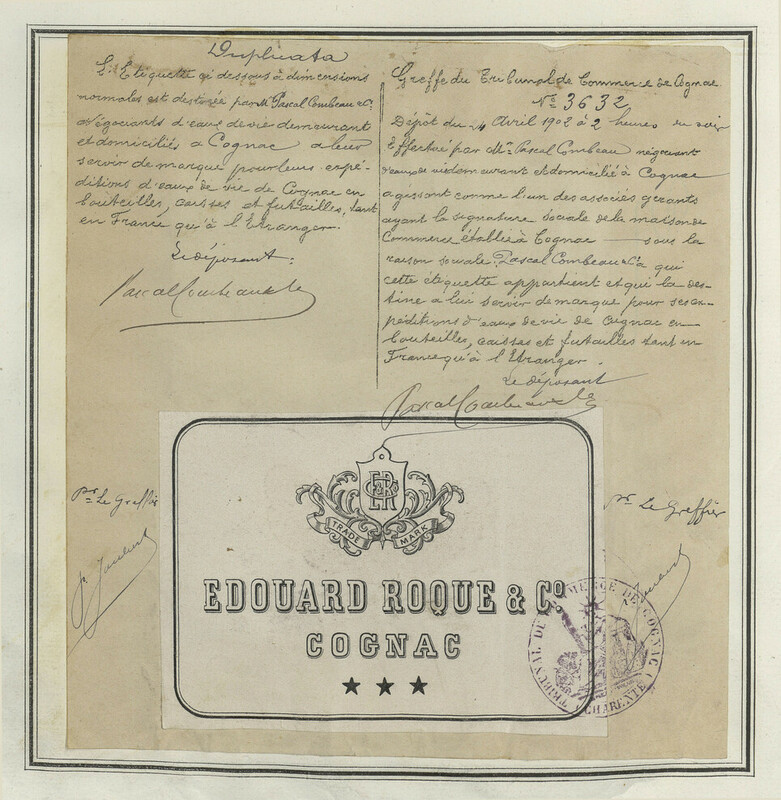 Duplicata
L'Etiquette ci dessous à dimensions
normales est destinée par M. Pascal Combeau & Cie
Négociants d'eaux de vie demeurant
et domiciliés à Cognac à leur
servir de marque pour leurs expé-
ditions d'eaux de vie de Cognac en
bouteilles, caisses et futailles, tant
en France qu'à l'Etranger.
Le déposant:
Pascal Combeau & Cie
Greffe du Tribunal de Commerce de Cognac
No 3632
Dépôt du 24 Avril 1902 à 2 heures du soir
Effectué par Mr. Pascal Combeau négociant
d'eaux de vie demeurant et domicilié à Cognac
agissant comme l'un des associés gérants
ayant la signature sociale de la maison de
Commerce établie à Cognac — sous la
raison sociale: Pascal Combeau & Cie à qui
cette étiquette appartient et qui la des-
tine à lui servir de marque pour ses ex-
péditions d'eaux de vie de Cognac en
bouteilles, caisses et futailles tant en
France qu'à l'Etranger.
Le déposant
Pascal Combeau & Cie
pr Le Greffier
pr Le Greffier
ER & Co
TRADE MARK
EDOUARD ROQUE & Co.
COGNAC
★ ★ ★
TRIBUNAL DE COMMERCE DE COGNAC
(CHARENTE)